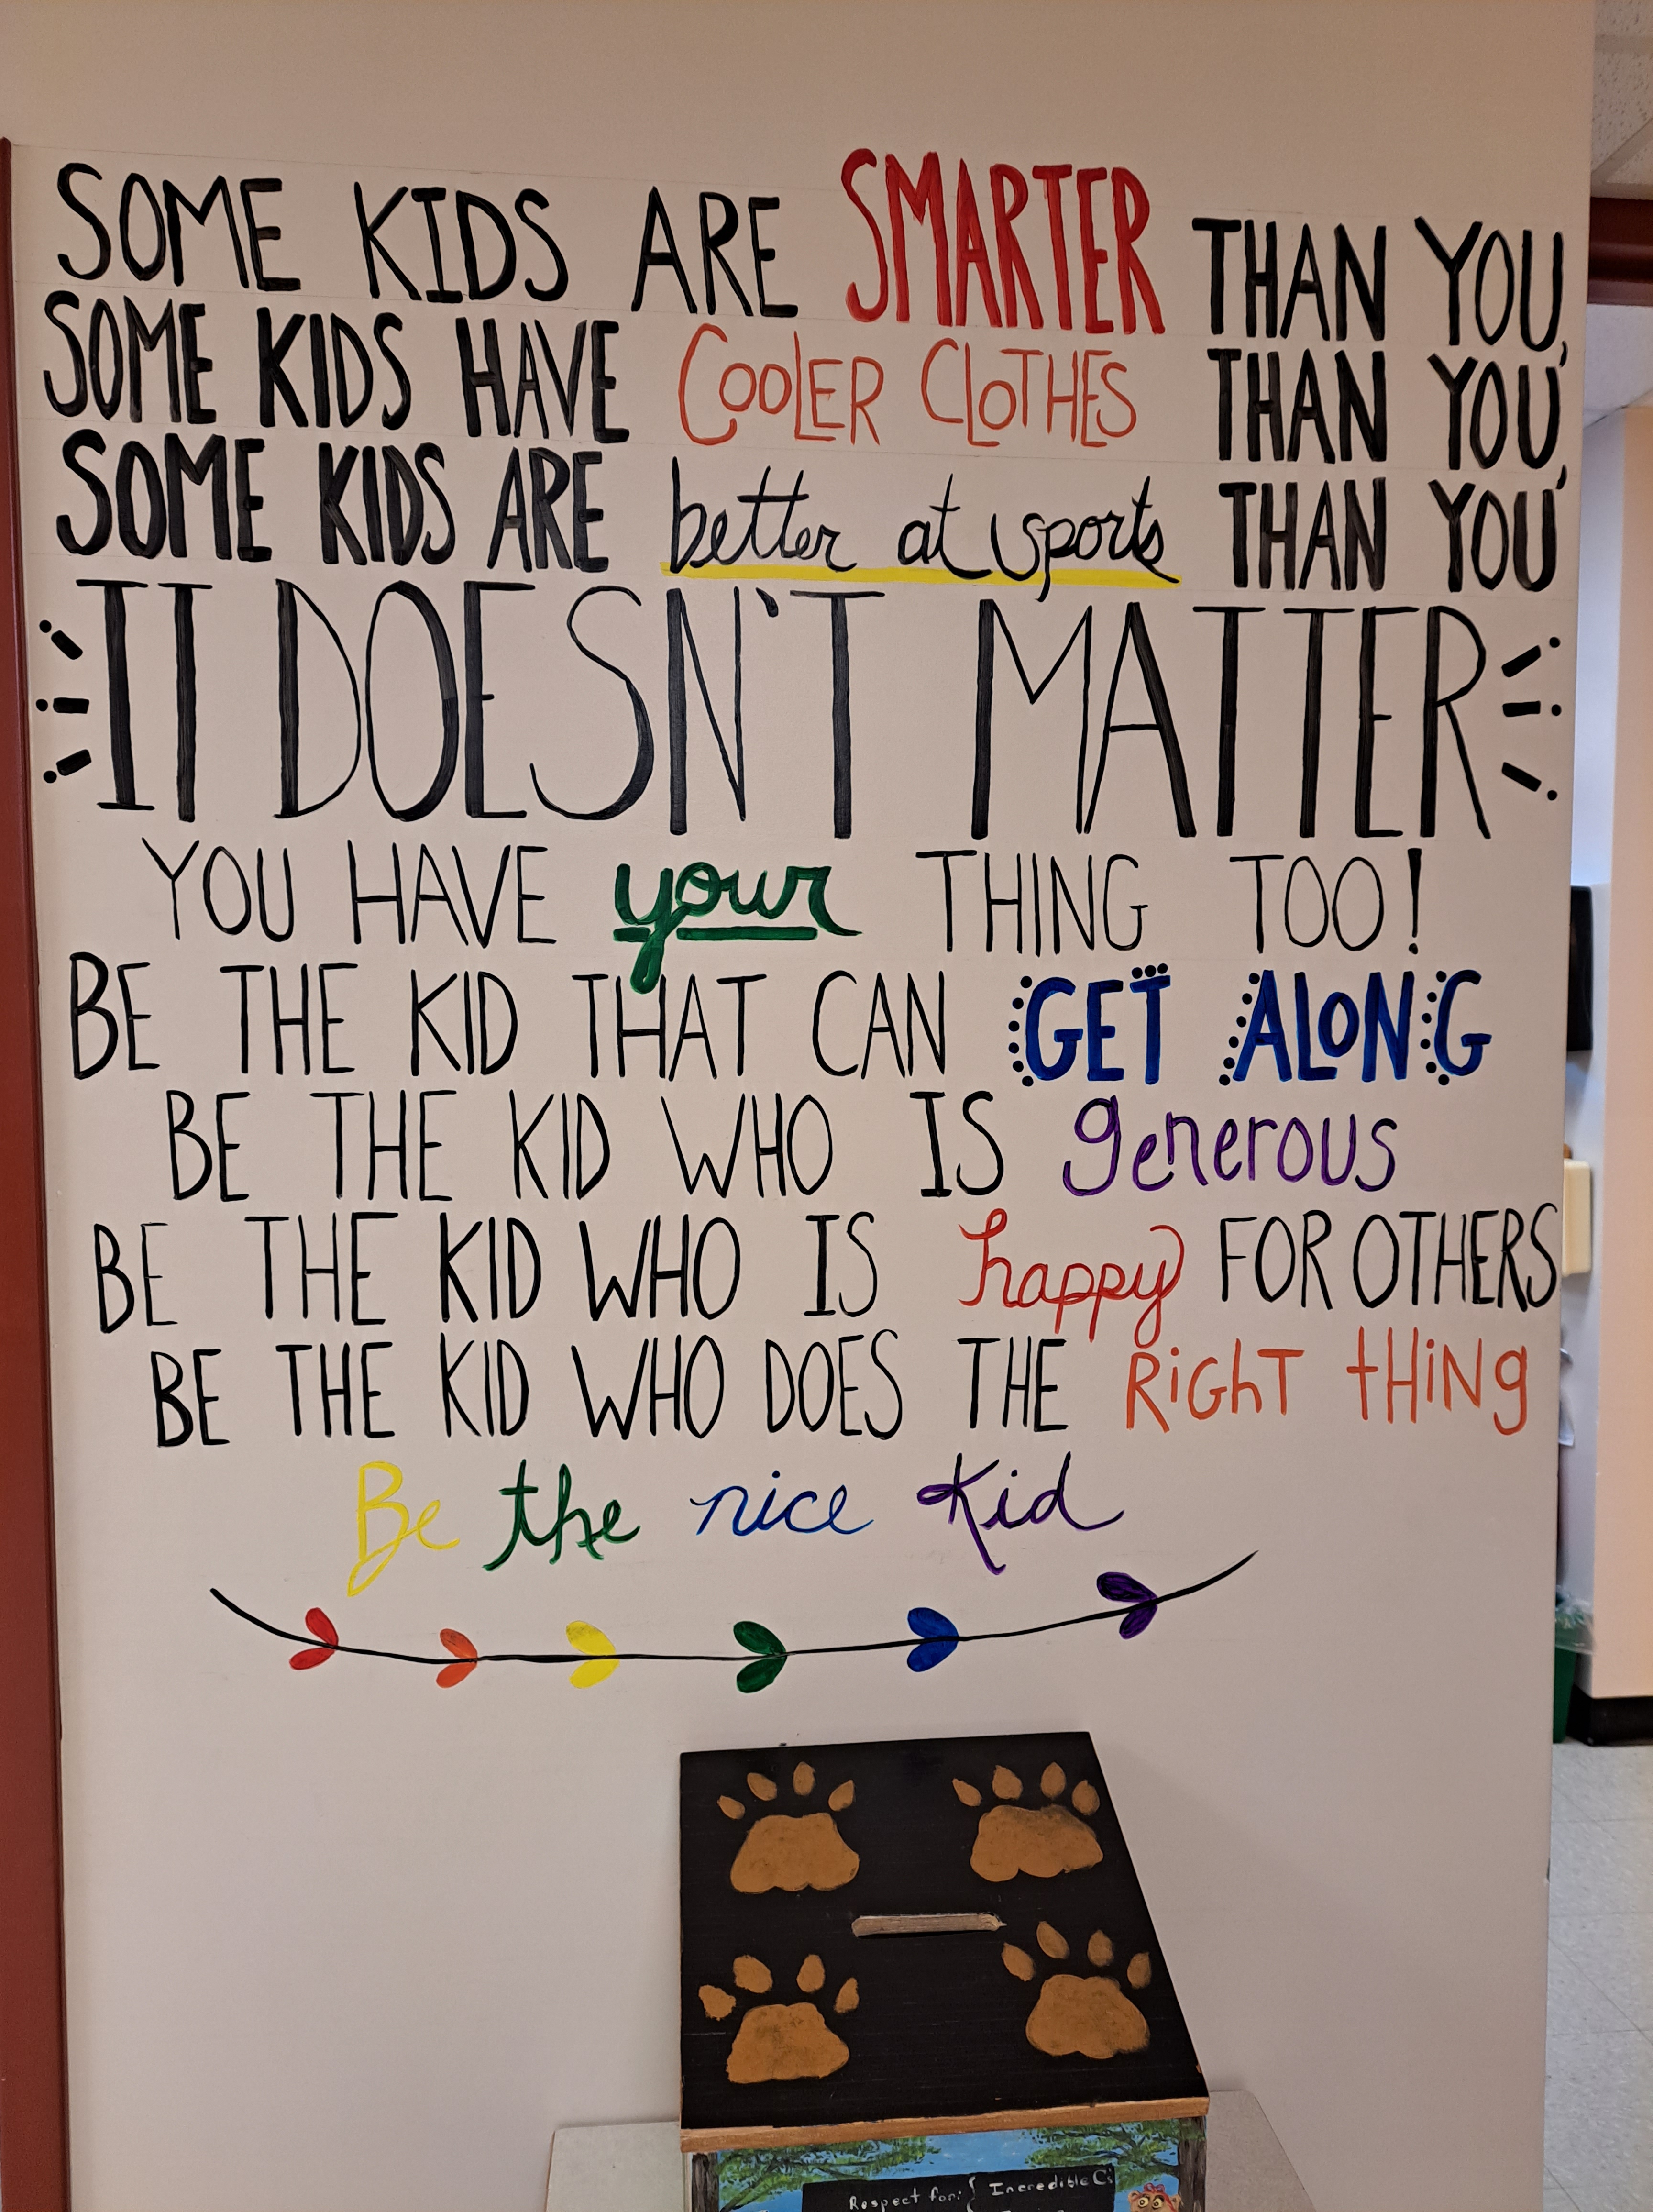 SOME KIDS ARE SMARTER THAN YOU,
SOME KIDS HAVE COOLER CLOTHES THAN YOU,
SOME KIDS ARE better at sports THAN YOU
IT DOESN'T MATTER
YOU HAVE your THING TOO!
BE THE KID THAT CAN GET ALONG
BE THE KID WHO IS generous
BE THE KID WHO IS happy FOR OTHERS
BE THE KID WHO DOES THE RiGhT tHiNg
Be the nice Kid
Respect for: { Incredible C's